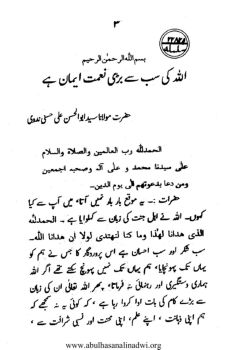 ۳
بسم اللہ الرحمٰن الرحیم
اللہ کی سب سے بڑی نعمت ایمان ہے
حضرت مولانا سید ابو الحسن علی حسنی ندوی
الحمدللہ رب العالمین والصلاۃ والسلام
علی سیدنا محمد و علی آلہ وصحبہ اجمعین
ومن دعا بدعوتھم الی یوم الدین۔
حضرات :۔ یہ موقع بار بار نہیں آتا، میں آپ سے کیا
کہوں۔ اللہ نے اہل جنت کی زبان سے کہلوایا ہے ۔ الحمدللہ
الذی ھدانا لھذا وما کنا لنھتدی لولا أن ھدانا اللہ۔
سب شکر اور سب احسان ہے اس پروردگار کا جس نے ہم کو
یہاں تک پہونچایا، ہم یہاں تک نہیں پہونچ سکتے تھے اگر اللہ
ہماری دستگیری اور رہنمائی نہ فرماتا، پھر اللہ تعالیٰ ان کی زبان
سے بڑے کام کی بات ادا کروا رہا ہے ، کہ کوئی یہ نہ سمجھے کہ
ہم اپنی ذہانت ، اپنے علم، اپنی محنت اور نسبی شرافت سے ،
www.abulhasanalinadwi.org